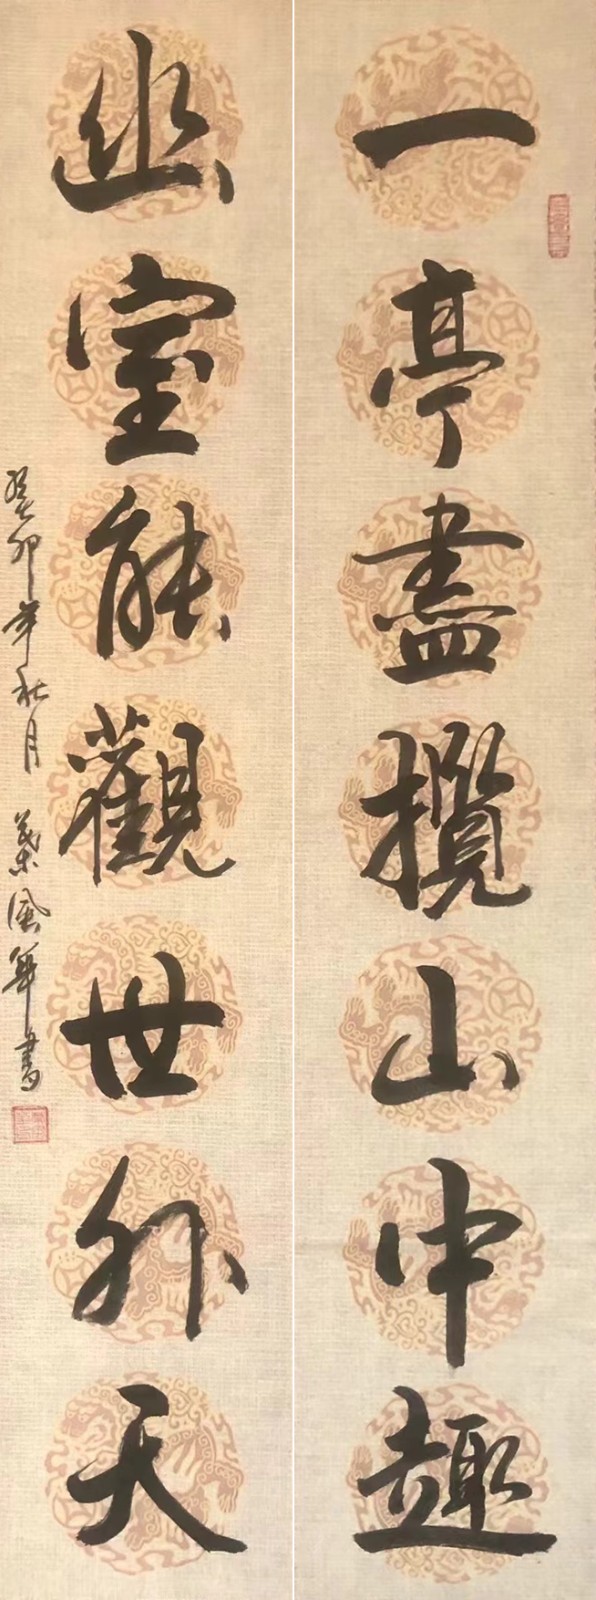 一亭盡攬山中趣
幽室能觀世外天
癸卯年秋月 葉風華書